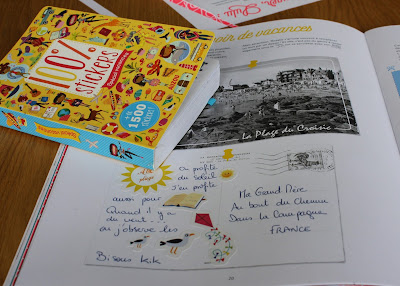 100%
stickers
+ de
1500
stickers
oir de vacances
La Plage du Croisic
on profite
du soleil
J'en profite
aussi pour
Quand il y a
du vent
on observe les
Bisous Kik
Ma Grand Mère
Au bout du Chemin
Dans la Campagne
FRANCE